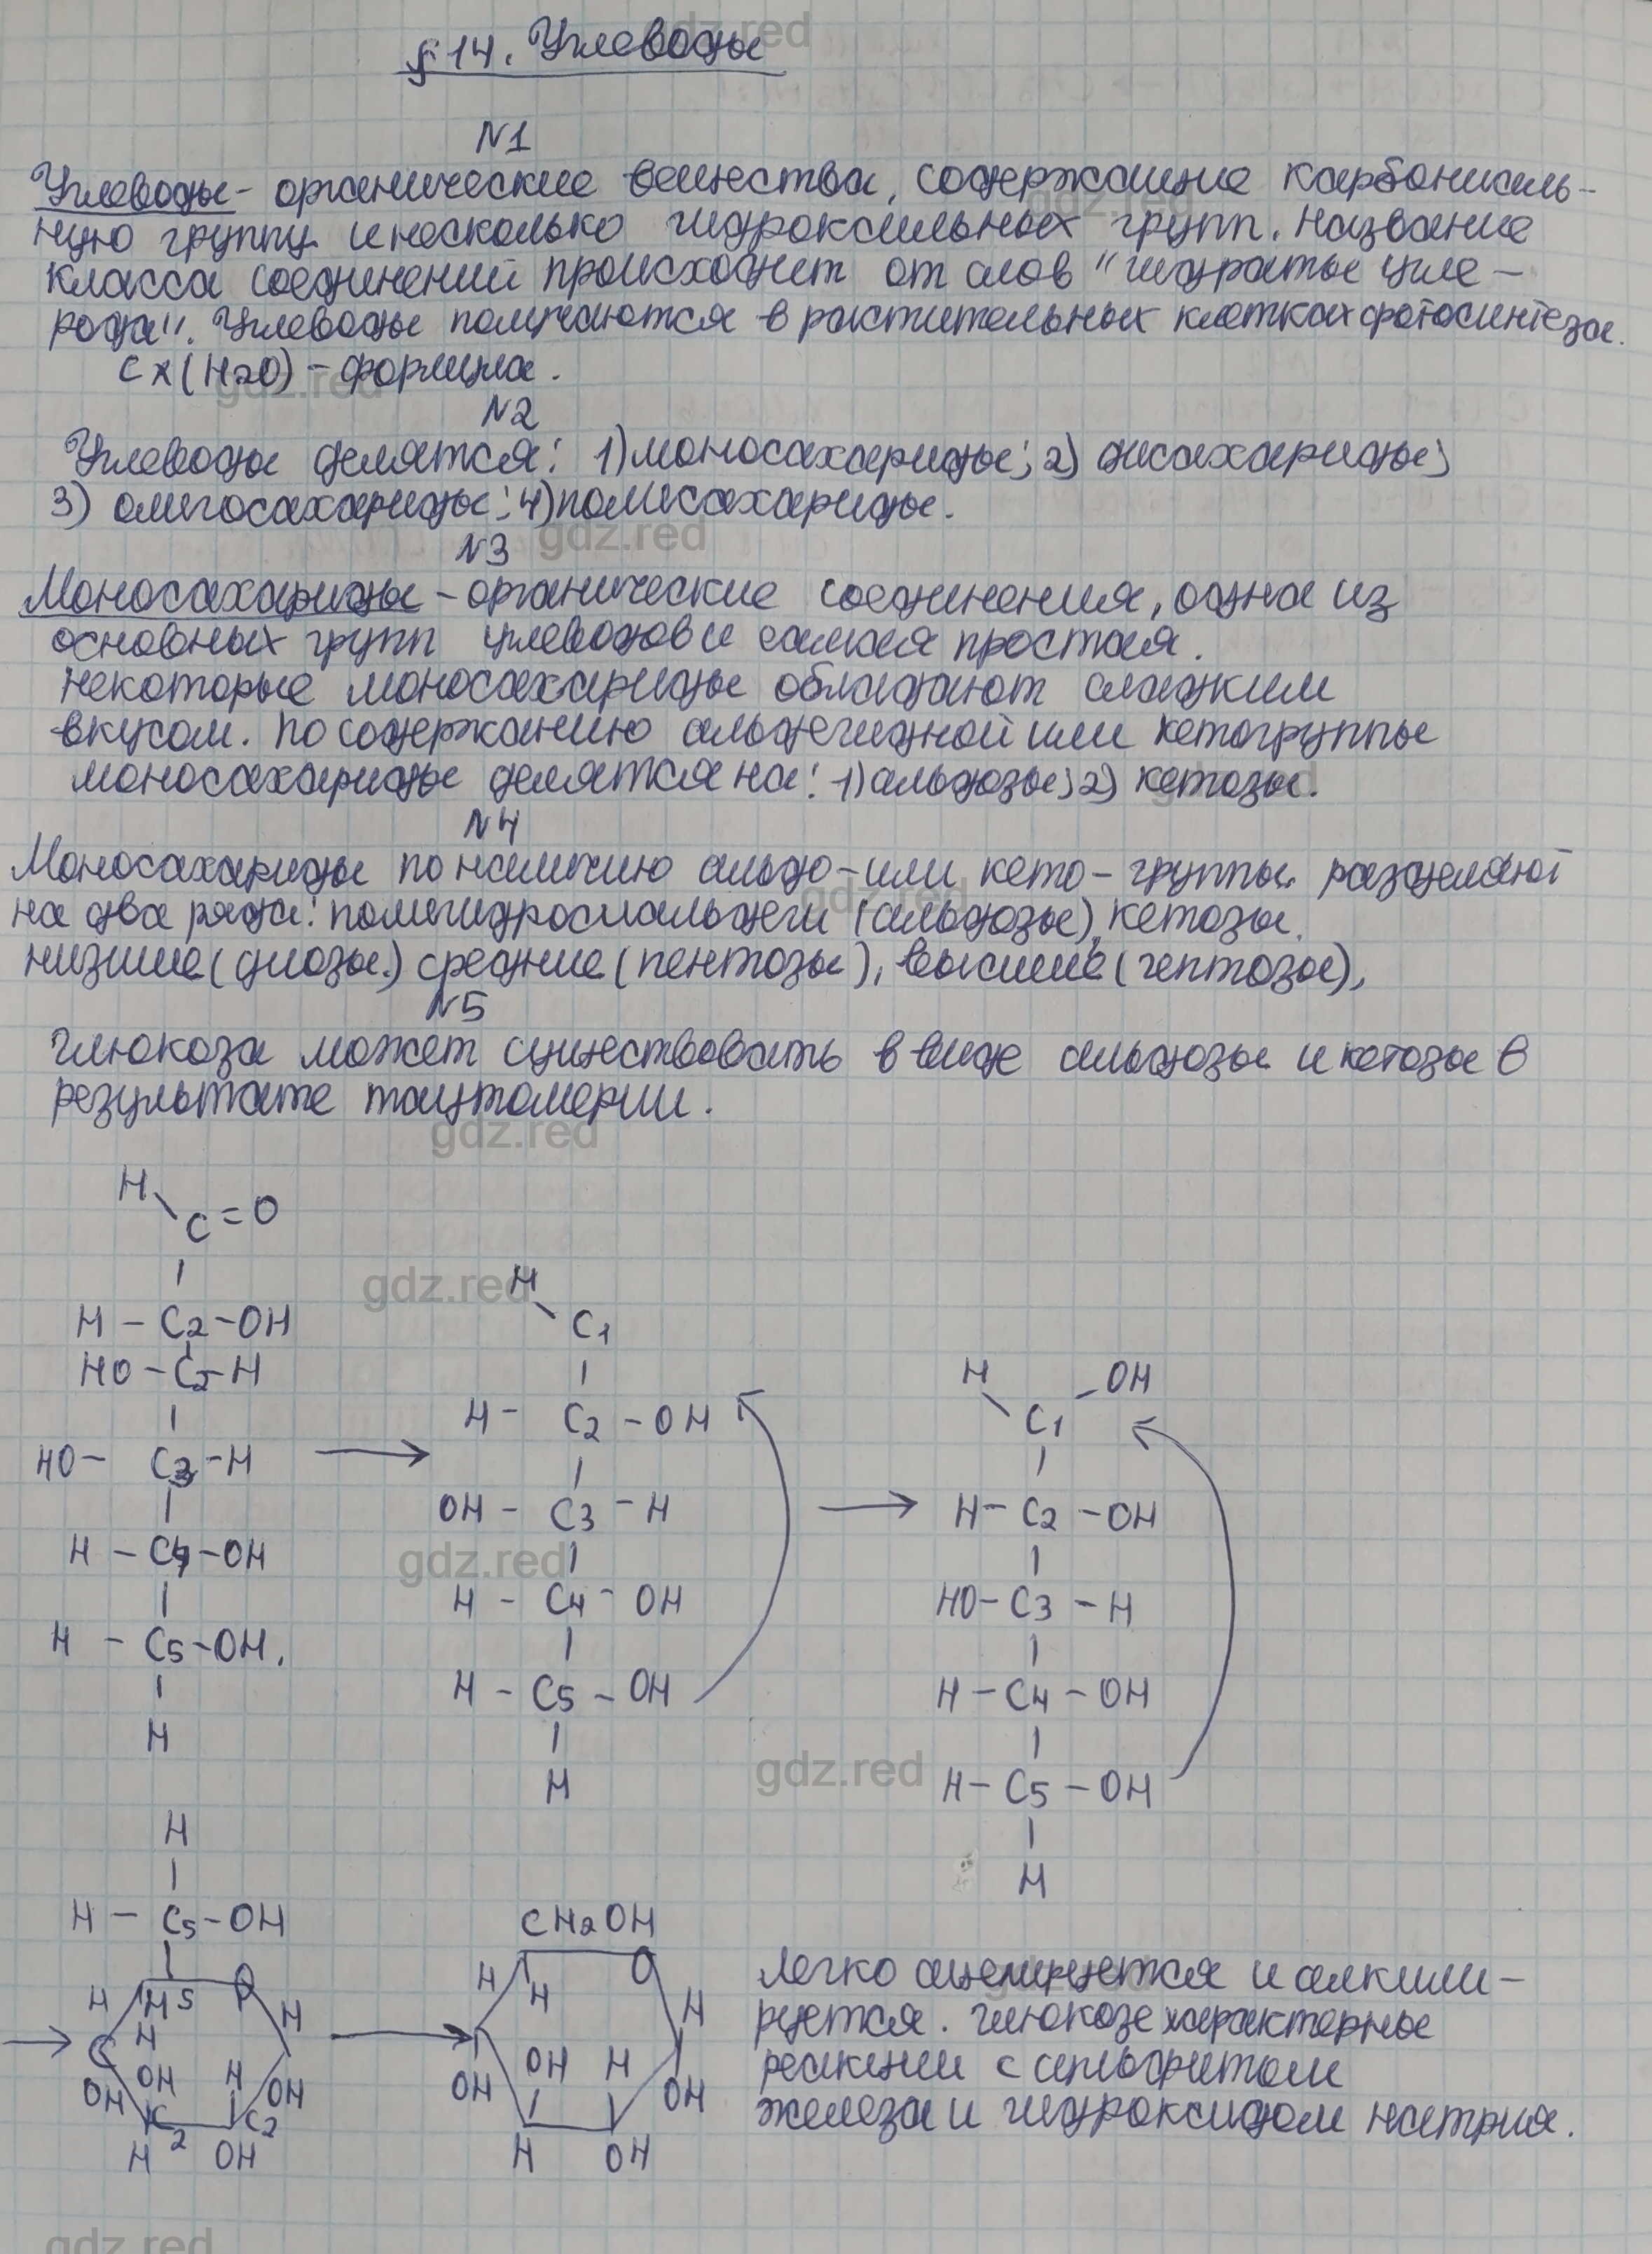 § 14. Углеводы
N1
Углеводы - органические вещества, содержащие карбониль-
ную группу и несколько гидроксильных групп. Название
класса соединений происходит от слов "гидраты угле-
рода". Углеводы получаются в растительных клетках фотосинтеза.
Cx(H2O) - формула.
N2
Углеводы делятся: 1) моносахариды; 2) дисахариды;
3) олигосахариды; 4) полисахариды.
N3
Моносахариды - органические соединения, одна из
основных групп углеводов и самая простая.
Некоторые моносахариды обладают сладким
вкусом. По содержанию альдегидной или кетогруппы
моносахариды делятся на: 1) альдозы; 2) кетозы.
N4
Моносахариды по наличию альдо- или кето- группы разделяют
на два ряда: (альдозы), кетозы.
низшие (диозы) средние (пентозы), высшие (гептозы),
N5
Глюкоза может существовать в виде альдозы и кетозы в
результате таутомерии.
H
C=O
H - C2 - OH
HO - C - H
HO - C3 - H
H - C4 - OH
H - C5 - OH.
H
H
C1
H - C2 - OH
OH - C3 - H
H - C4 - OH
H - C5 - OH
H
H OH
C1
H - C2 - OH
HO - C3 - H
H - C4 - OH
H - C5 - OH
H
H
H - C5 - OH
H H 5 O H
C H
OH OH H OH
C 2 C2
H OH
CH2OH
H H O H
OH OH H OH
H OH
Легко ацилируется и алкили-
руется. Глюкозе характерные
реакции с сульфитом
железа и гидроксидом натрия.
gdz.red
gdz.red
gdz.red
gdz.red
gdz.red
gdz.red
gdz.red
gdz.red
gdz.red
gdz.red
gdz.red
gdz.red